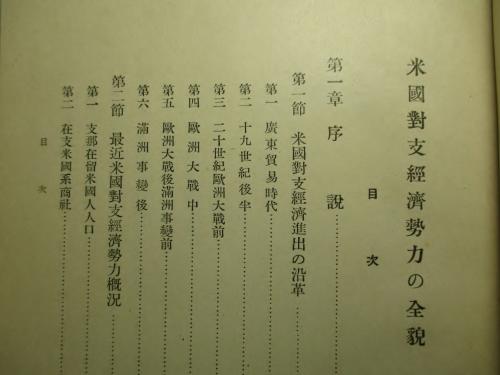 米國對支經濟勢力の全貌
目次
第一章 序說……………
第一節 米國對支經濟進出の沿革……
第一 廣東貿易時代……………
第二 十九世紀後半……………
第三 二十世紀歐洲大戰前……………
第四 歐洲大戰中……………
第五 歐洲大戰後滿洲事變前……………
第六 滿洲事變後……………
第二節 最近米國對支經濟勢力概況……
第一 支那在留米國人人口……………
第二 在支米國系商社……………
目次